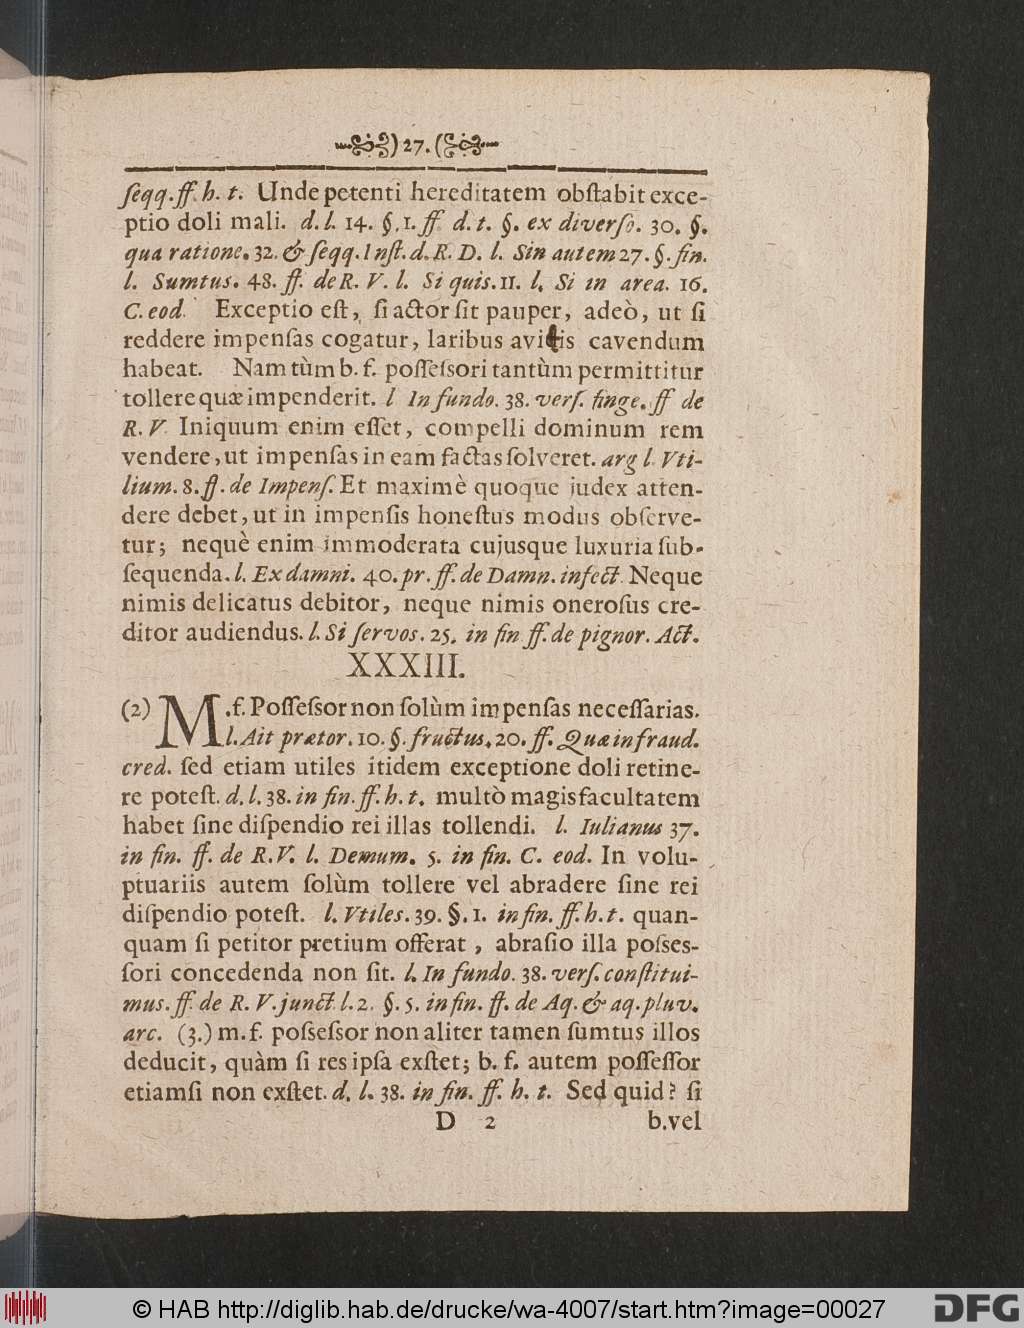 ) 27. (
ſeqq. ff. h. t. Unde petenti hereditatem obſtabit exce-
ptio doli mali. d. l. 14. §. 1. ff d. t. §. ex diverſo. 30. §.
qua ratione. 32. & ſeqq. Inſt. d. R. D. l. Sin autem 27. §. fin.
l. Sumtus. 48. ff. de R. V. l. Si quis. 11. l. Si in area. 16.
C. eod. Exceptio eſt, ſi actor ſit pauper, adeò, ut ſi
reddere impenſas cogatur, laribus avitis cavendum
habeat. Nam tùm b. f. poſſeſsori tantùm permittitur
tollere quæ impenderit. l In fundo. 38. verſ. finge. ff de
R. V. Iniquum enim eſſet, compelli dominum rem
vendere, ut impenſas in eam factas ſolveret. arg l. Vti-
lium. 8. ff. de Impenſ. Et maximè quoque judex atten-
dere debet, ut in impenſis honeſtus modus obſerve-
tur; nequè enim immoderata cujusque luxuria ſub-
ſequenda. l. Ex damni. 40. pr. ff. de Damn. infect. Neque
nimis delicatus debitor, neque nimis oneroſus cre-
ditor audiendus. l. Si ſervos. 25. in fin ff. de pignor. Act.
XXXIII.
(2) M. f. Poſſeſsor non ſolùm impenſas neceſſarias.
l. Ait prætor. 10. §. fructus. 20. ff. Quæ in fraud.
cred. ſed etiam utiles itidem exceptione doli retine-
re poteſt. d. l. 38. in fin. ff. h. t. multò magis facultatem
habet ſine diſpendio rei illas tollendi. l. Iulianus 37.
in fin. ff. de R. V. l. Demum. 5. in fin. C. eod. In volu-
ptuariis autem ſolùm tollere vel abradere ſine rei
diſpendio poteſt. l. Vtiles. 39. §. 1. in fin. ff. h. t. quan-
quam ſi petitor pretium offerat, abraſio illa poſses-
ſori concedenda non ſit. l. In fundo. 38. verſ. conſtitui-
mus. ff. de R. V. junct. l. 2. §. 5. in fin. ff. de Aq. & aq. pluv.
arc. (3.) m. f. poſseſsor non aliter tamen ſumtus illos
deducit, quàm ſi res ipſa exſtet; b. f. autem poſſeſſor
etiamſi non exſtet. d. l. 38. in fin. ff. h. t. Sed quid? ſi
D 2 b. vel
© HAB http://diglib.hab.de/drucke/wa-4007/start.htm?image=00027
DFG